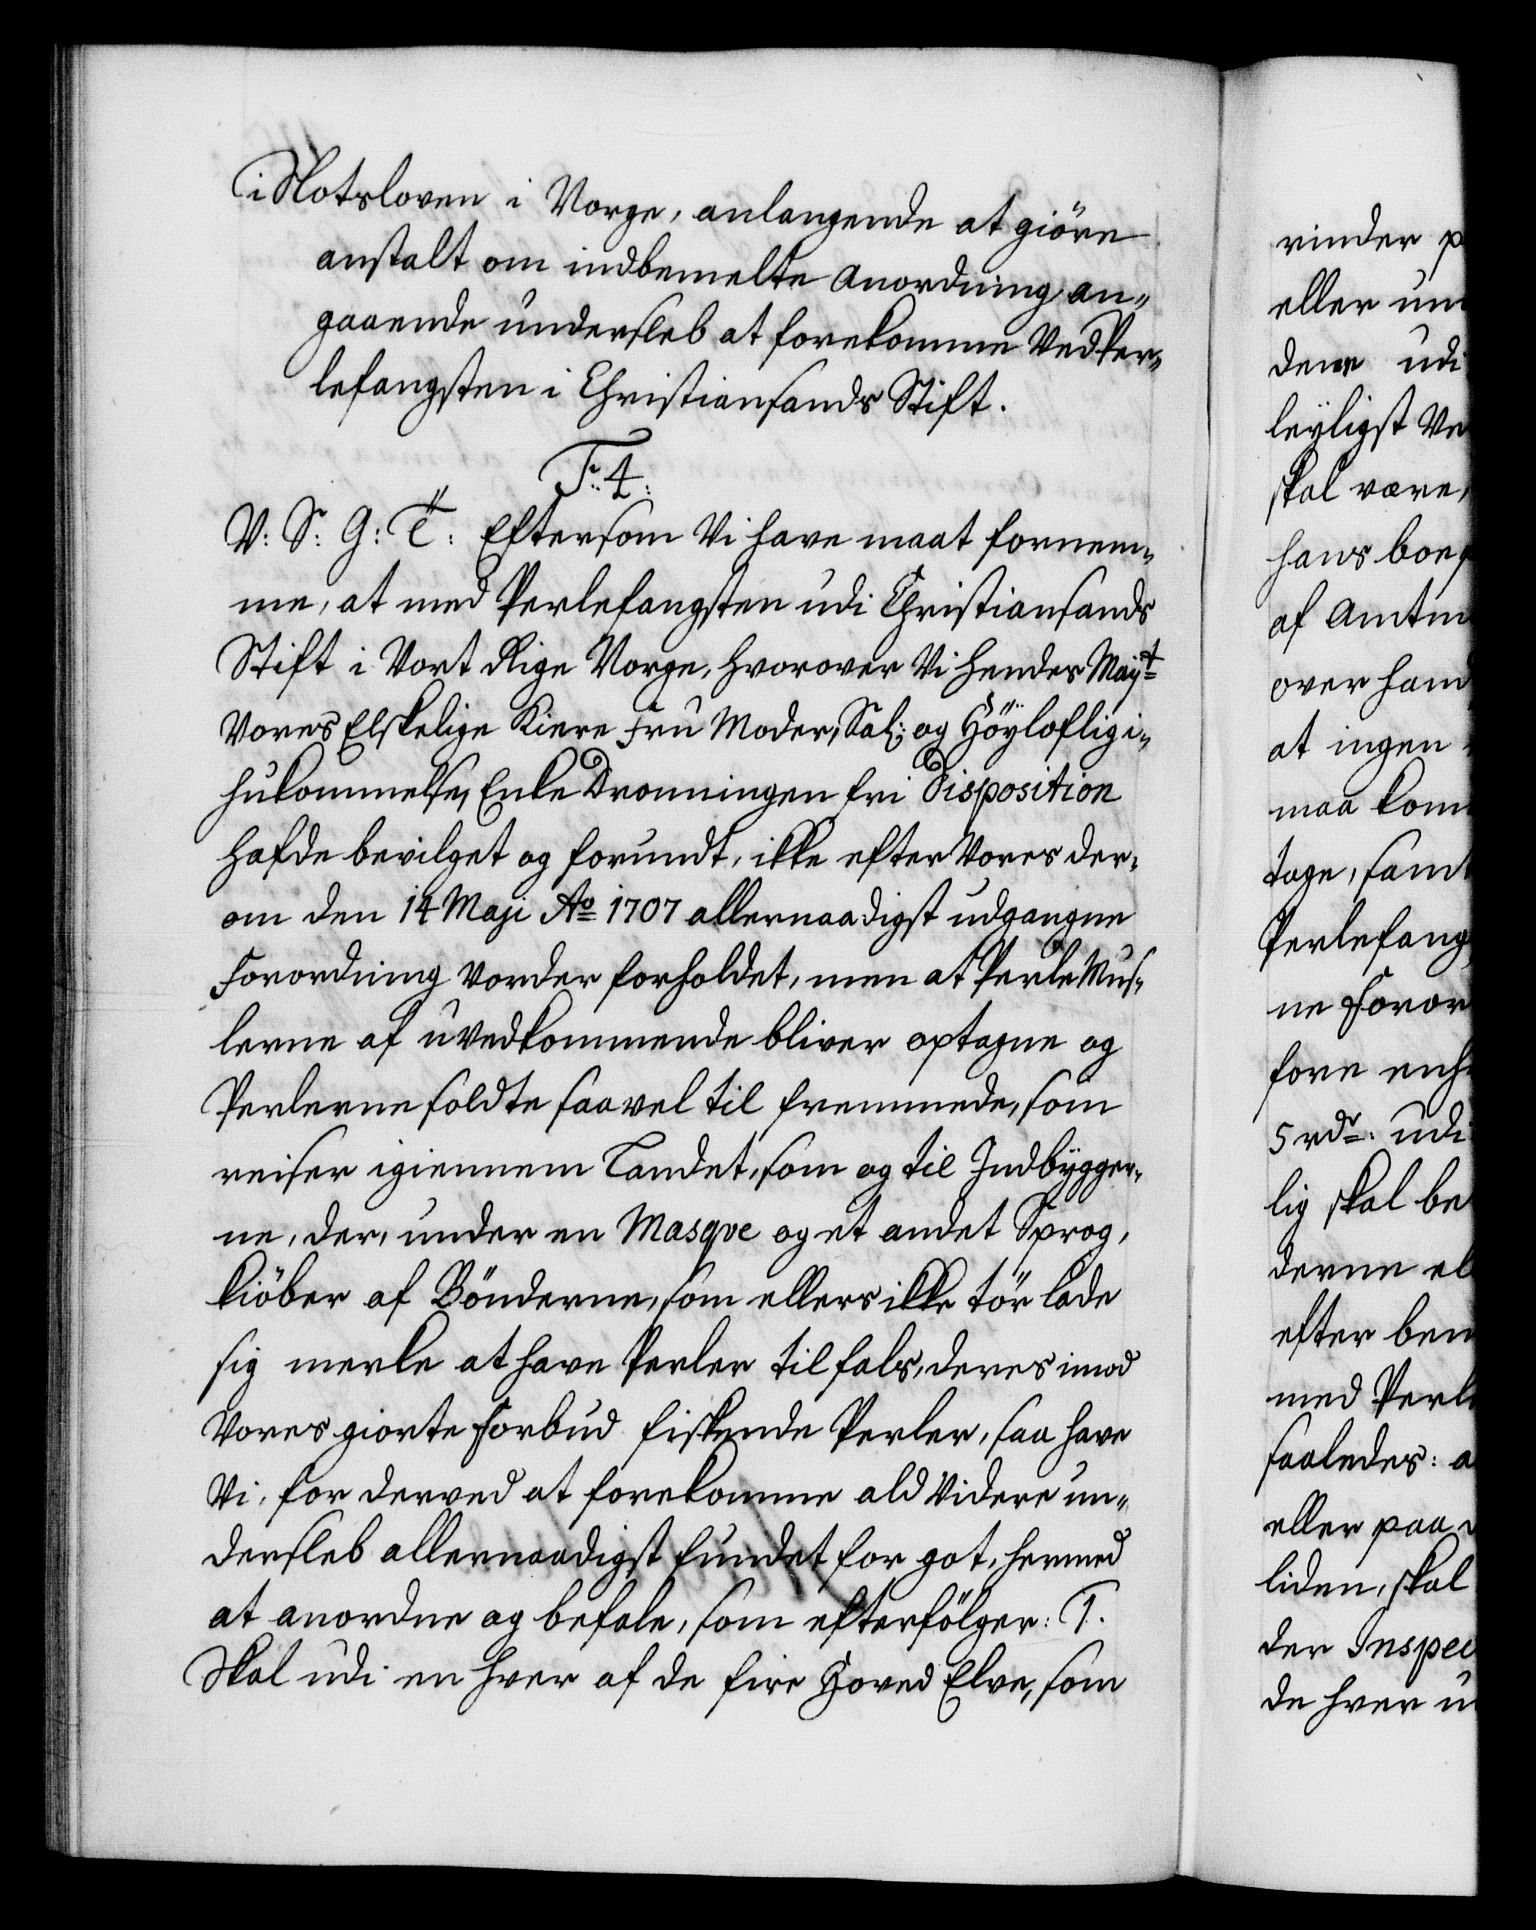 i Slotsloven i Norge, anlangende at giöre
anstalt om indbemelte Anordning an-
gaaende undersleb at forekomme Ved Per-
lefangsten i Christiansands Stift.
F. 4.
V: S: G: T: Eftersom Vi have maat fornem-
me, at med Perlefangsten udi Christiansands
Stift i Vort Rige Norge, hvorover Vi Hendes Mayt
Vores Elskelige Kiere Fru Moder, Sal: og Höylofligi-
hukommelse, Enke Dronningen fri Disposition
hafde bevilget og forundt, ikke efter Vores der-
om den 14 Maji Ao 1707 allernaadigst udgangne
Forordning vorder forholdet, men at Perle Mus-
lerne af uvedkommende bliver optagne og
Perlerne soldte saavel til fremmede, som
reiser igiennem Landet, som og til Indbygger-
ne, der, under en Masqve og et andet Sprog,
kiöber af Bönderne, som ellers ikke tör lade
sig merke at have Perler til fals, deres imod
Vores giorte Forbud fiskende Perler, saa have
Vi, for derved at forekomme ald Videre un-
dersleb allernaadigst fundet for got, hermed
at anordne og befale, som efterfölger: 1.
Skal udi en hver af de fire Hoved Elve, som
rinder
eller
dene udi
leyligst
skal være,
hans
af
over
at ingen
maa
tage, samt
Perlefang
ne
fore
5 rdr. udi
lig skal be
derne
efter
med
saaledes:
eller paa
liden, skal
der
de hver